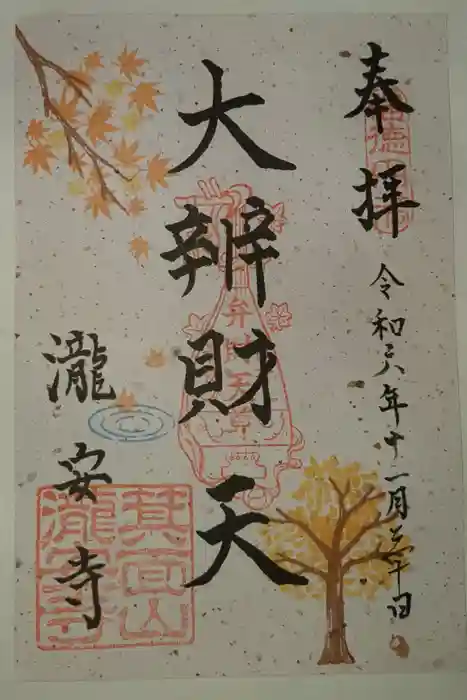 奉拝
令和六年十一月三十日
大辨財天
弁財天
瀧安寺
箕面山
瀧安寺